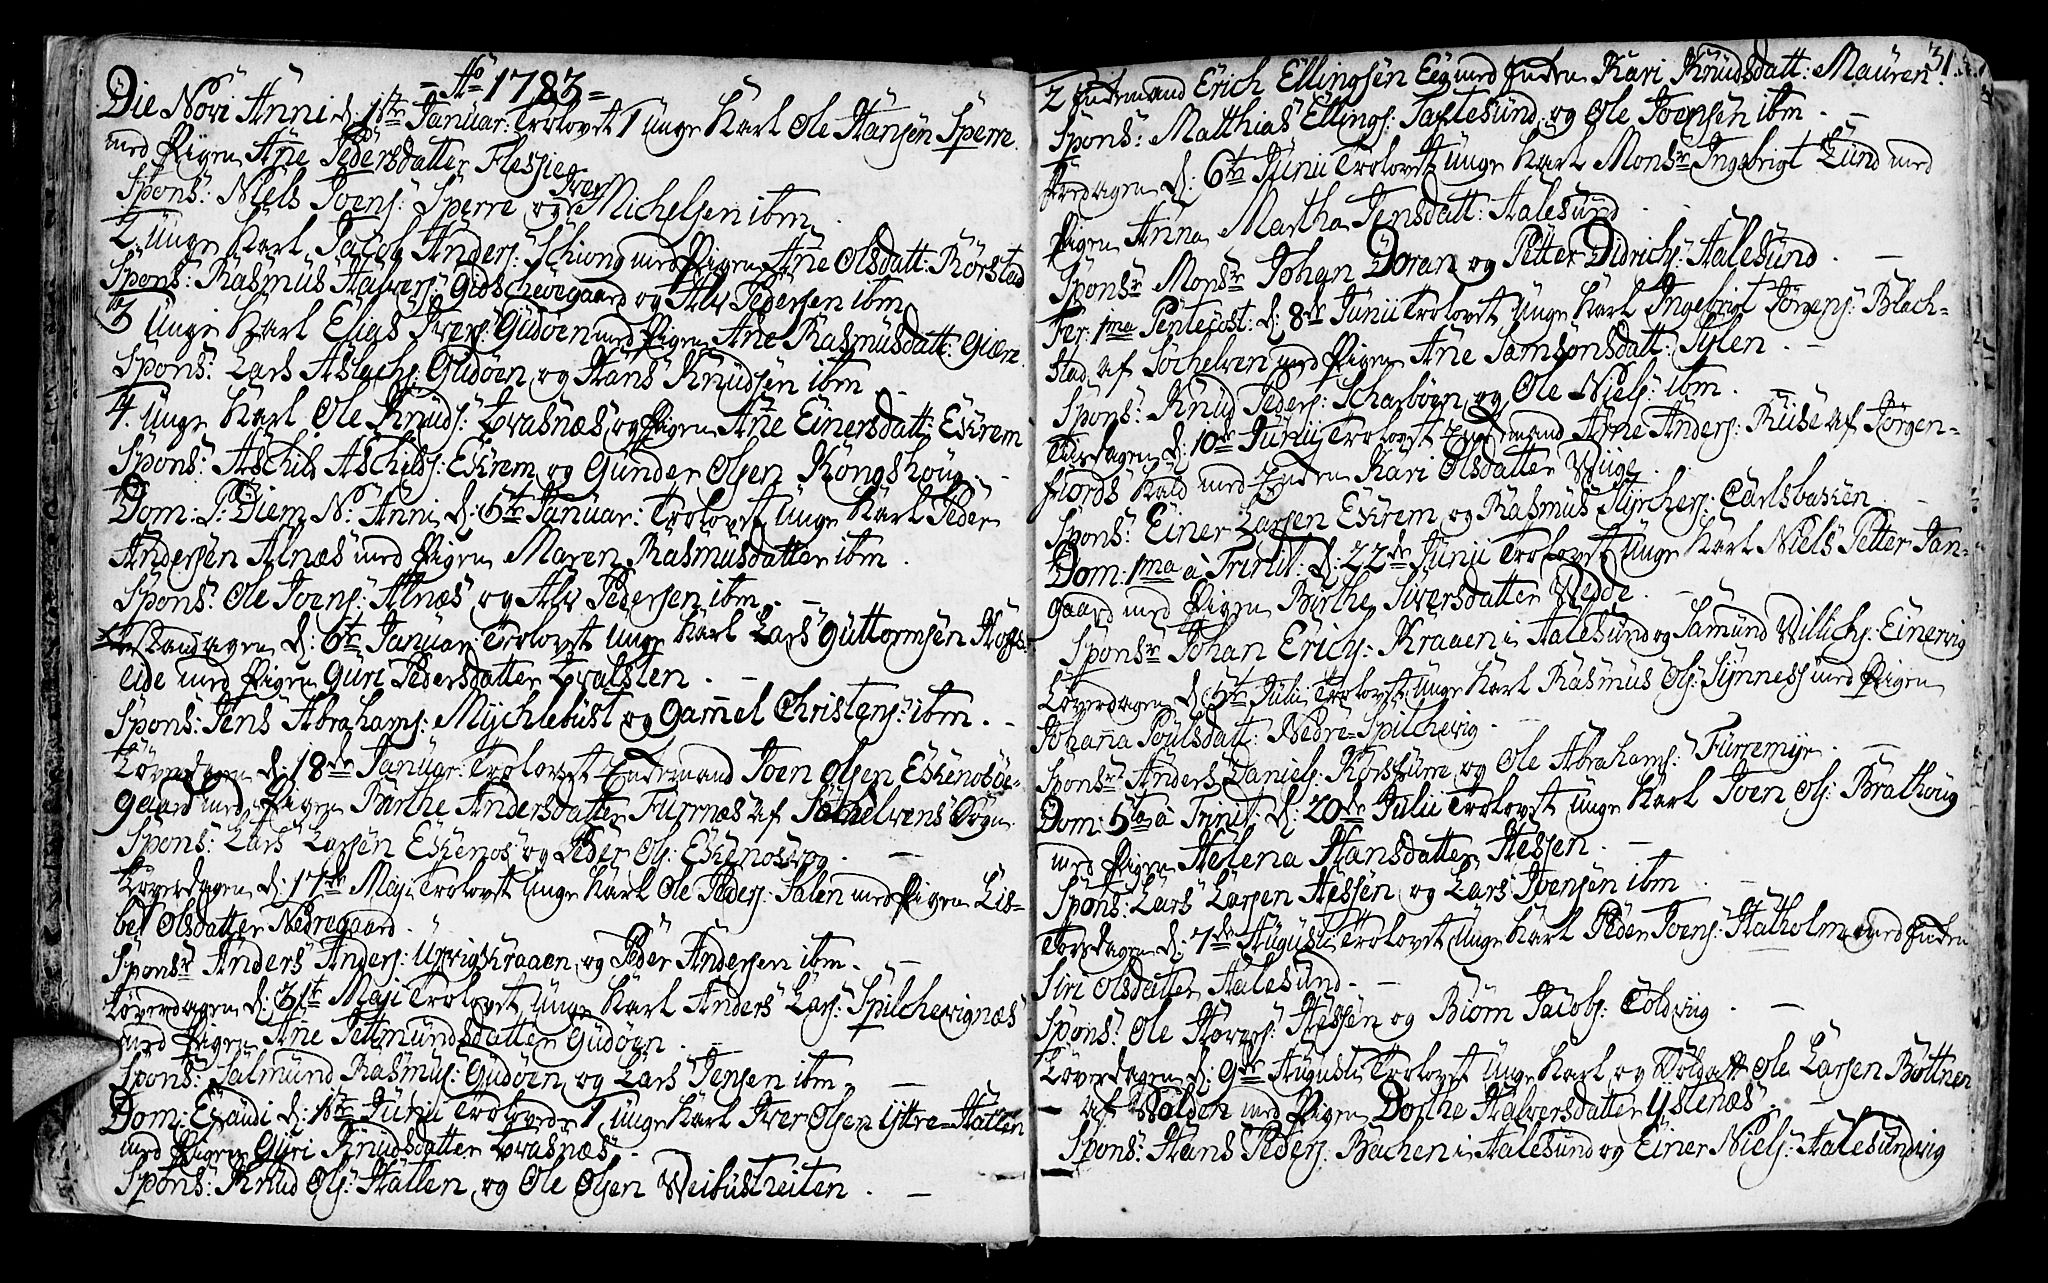 - Aō 1783 =
Die Novi Anni d: 1te Januar: Trolovet 1 unge Karl Ole Hansen Sperre
med Pigen Ane Pedersdatter Flessie
Spons: Niels Joens: Sperre og Iver Michelsen ibm.
2. unge Karl Jacob Anders: Schiong med Pigen Ane Olsdatt: Rörstad
Spons: Rasmus Halvers: Gidschevegaard og Alv Pedersen ibm
3 unge Karl Elias Ivers: Gudöen med Pigen Ane Rasmusdatt: Giære
Spons: Lars Aslachs: Gudöen og Hans Knudsen ibm -
4. unge Karl Ole Knuds: Qvasnæs og Pigen Ane Einersdatt: Ekrem
Spons: Aschild Aschilds: Ekrem og Gunder Olsen Kongshoug -
Dom: P: Diem N: Anni d: 5te Januar: Trolovet unge Karl Peder
Andersen Alnæs med Pigen Maren Rasmusdatter ibm.
Spons: Ole Joens: Alnæs og Alv Pedersen ibm. -
Mandagen d: 6te Januar: Trolovet unge Karl Lars Guttormsen Hofs-
eide med Pigen Guri Pedersdatter Qvalsten. -
Spons: Jens Abrahams: Mychlebust og Gamel Christens: ibm. -
Löverdagen d: 18de Januar: Trolovet Enkemand Joen Olsen Eskenosöe-
gaard med Pigen Birthe Andersdatter Furnæs af Söchelvens Sogn
Spons: Lars Larsen Eskenos og Peder Ols: Eskenosvog. -
Löverdagen d: 17de Maji Trolovet unge Karl Ole Peders: Salen med Pigen Lis-
bet Olsdatter Nedregaard.
Sponsr Anders Anders: Uxvigskraaen og Peder Andersen ibm. -
Löverdagen d: 31te Maji Trolovet unge Karl Anders Lars: Spilchevignæs
med Pigen Ane Pettmundsdatter Gudöen. -
Spons: Salmund Rasmus: Gudöen og Lars Jensen ibm. -
Dom: Exaudi d: 1ste Junii Trolovede 1 unge Karl Iver Olsen Yttre-Hatlen
med Pigen Guri Knudsdatter Qvasnæs. -
Spons: Knud Ols: Hatlen og Ole Olsen Weibustreiten. -
31.
2 Enkemand Erich Ellingsen Eeg med Enken Kari Knudsdatt: Mauren.
Spons: Matthias Ellings: Saltesund og Ole Joensen ibm. -
Fredagen d: 6te Junii Trolovet unge Karl Monsr Ingebrigt Lund med
Pigen Anna Martha Jensdatt: Aalesund
Sponsr Monsr Johan Doran og Petter Didrichs: Aalesund. -
Fer: 1ma Pentecost: d: 8de Junii Trolovet unge Karl Ingebrigt Jörgens: Blach-
stad af Söchelven med Pigen Ane Samsonsdatt: Sylen. -
Spons: Knud Peders: Scharböen og Ole Niels: ibm. -
Tirsdagen d: 10de Junii Trolovet Enkemand Arne Anders: Ruse af Jörgen-
fiords Kald med Enken Kari Olsdatter Wiige. -
Spons: Einer Larsen Ekrem og Rasmus Styrchers: Carlsbakken -
Dom: 1ma à Trinit: d: 22de Junii Trolovet unge Karl Niels Petter Jan-
gaard med Pigen Birthe Siversdatter Wedde. -
Sponsr Johan Erichs: Kraaen i Aalesund og Samund Willichs: Einervig
Löverdagen d: 5te Julii Trolovet unge Karl Rasmus Ols: Synness med Pigen
Johana Poulsdatt: Nedre-Spilchevig. -
Sponsr Anders Daniels: Korsfurre og Ole Abrahams: Furremyr. -
Dom: 5ta à Trinit: d: 20de Julii Trolovet unge Karl Joen Ols: Brathoug
med Pigen Helena Hansdatter Hessen. -
Spons: Lars Larsen Hessen og Lars Ivensen ibm. -
Torsdagen d: 7de Augusti Trolovet unge Karl Peder Joens: Hatholm med Enken
Siri Olsdatter Aalesund. -
Spons: Ole Havers: Hessen og Biörn Jacobs: Toldvig. -
Löverdagen d: 9de Augusti Trolovet unge Karl og Soldatt Ole Larsen Bottnen
af Wolden med Pigen Dorthe Halversdatter Ystenæs. -
Spons: Hans Peders: Bachen i Aalesund og Einer Niels: Aalesundvig